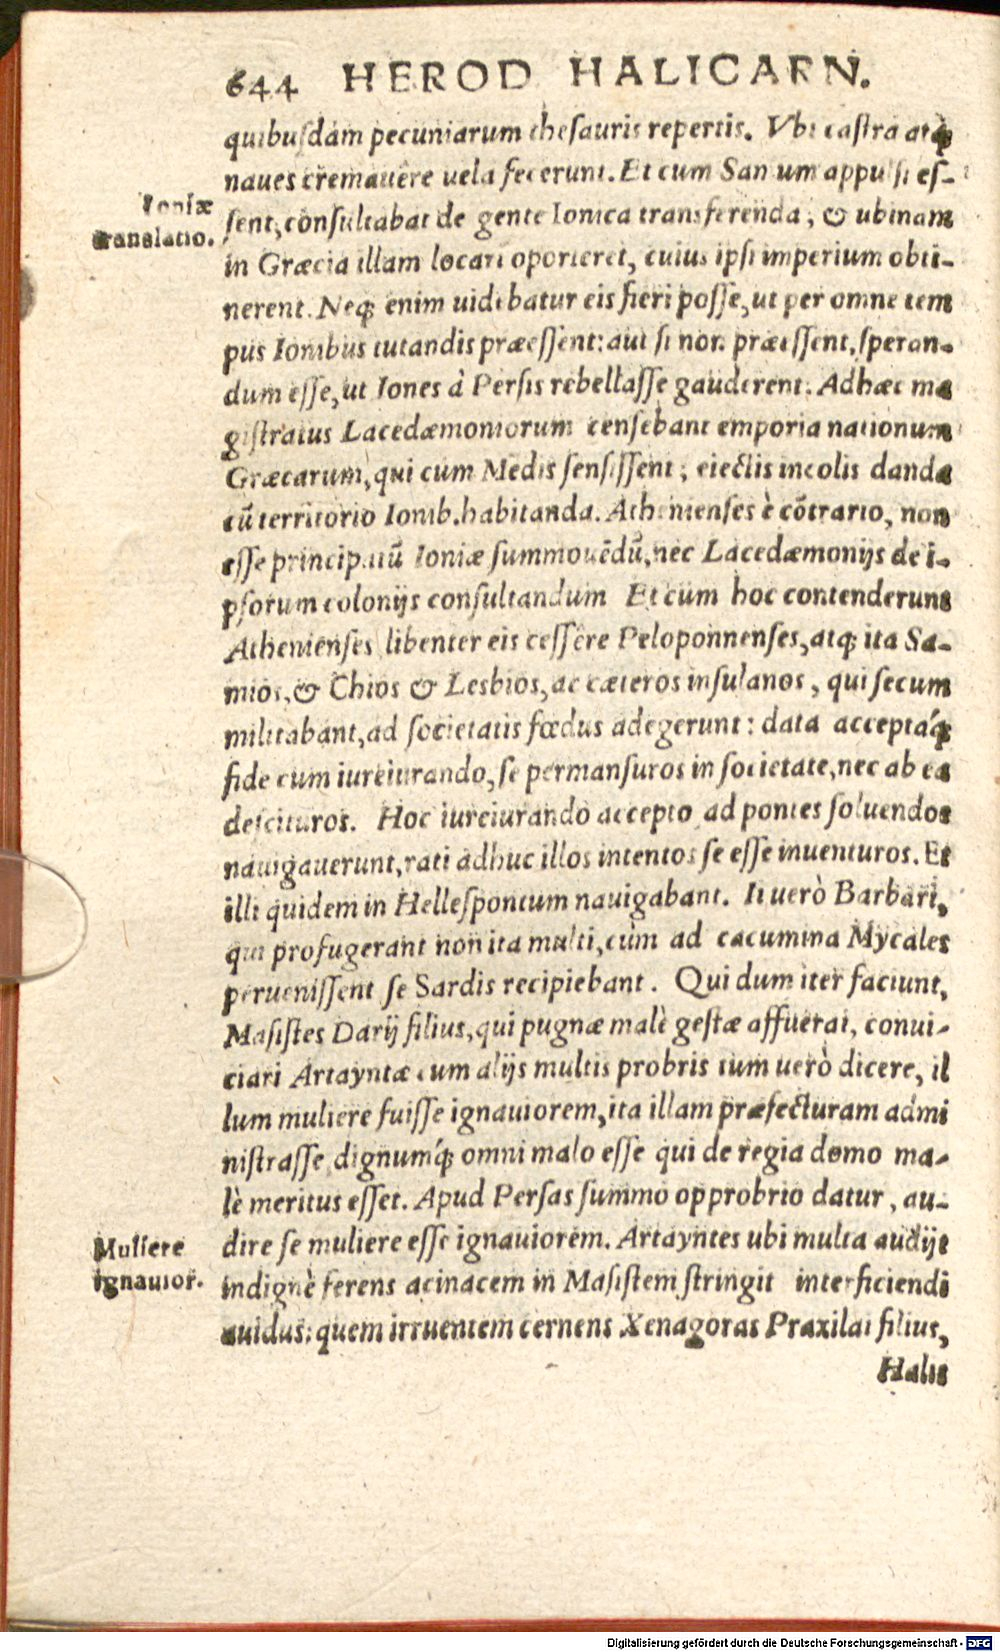 644 HEROD HALICARN.
quibuſdam pecuniarum theſauris repertis. Vbi caſtra atq́;
naues cremauêre uela fecerunt. Et cum Samum appulſi eſ-
Ioniæ
tranſlatio.
ſent, conſultabat de gente Ionica transferenda, & ubinam
in Græcia illam locari oporteret, cuius ipſi imperium obti-
nerent. Neq; enim uidebatur eis fieri poſſe, ut per omne tem
pus Ionibus tutandis præeſſent: aut ſi non præeſſent, ſperan-
dum eſſe, ut Iones à Perſis rebellaſſe gauderent. Adhæc ma
giſtratus Lacedæmoniorum cenſebant emporia nationum
Græcarum, qui cum Medis ſenſiſſent, eiectis incolis danda
cũ territorio Ionib. habitanda. Athenienſes è cõtrario, non
eſſe principatũ Ioniæ ſummouẽdũ, nec Lacedæmonijs de i-
pſorum colonijs conſultandum Et cùm hoc contenderunt
Athenienſes libenter eis ceſſêre Peloponnenſes, atq; ita Sa-
mios, & Chios & Lesbios, ac cæteros inſulanos, qui ſecum
militabant, ad ſocietatis fœdus adegerunt: data acceptaq́;
fide cum iureiurando, ſe permanſuros in ſocietate, nec ab ea
deſcituros. Hoc iureiurando accepto ad pontes ſoluendos
nauigauerunt, rati adhuc illos intentos ſe eſſe inuenturos. Et
illi quidem in Helleſpontum nauigabant. Ii uerò Barbari,
qui profugerant non ita multi, cùm ad cacumina Mycales
perueniſſent ſe Sardis recipiebant. Qui dum iter faciunt,
Maſiſtes Darij filius, qui pugnæ malè geſtæ affuerat, conui-
ciari Artayntæ cum alijs multis probris tum uerò dicere, il
lum muliere fuiſſe ignauiorem, ita illam præfecturam admi
niſtraſſe dignumq́; omni malo eſſe qui de regia domo ma-
lè meritus eſſet. Apud Perſas ſummo opprobrio datur, au-
Muliere
ignauior.
dire ſe muliere eſſe ignauiorem. Artayntes ubi multa audijt
indignè ferens acinacem in Maſiſtem ſtringit interficiendi
auidus: quem irruentem cernens Xenagoras Praxilai filius,
Halis
Digitalisierung gefördert durch die Deutsche Forschungsgemeinschaft - DFG